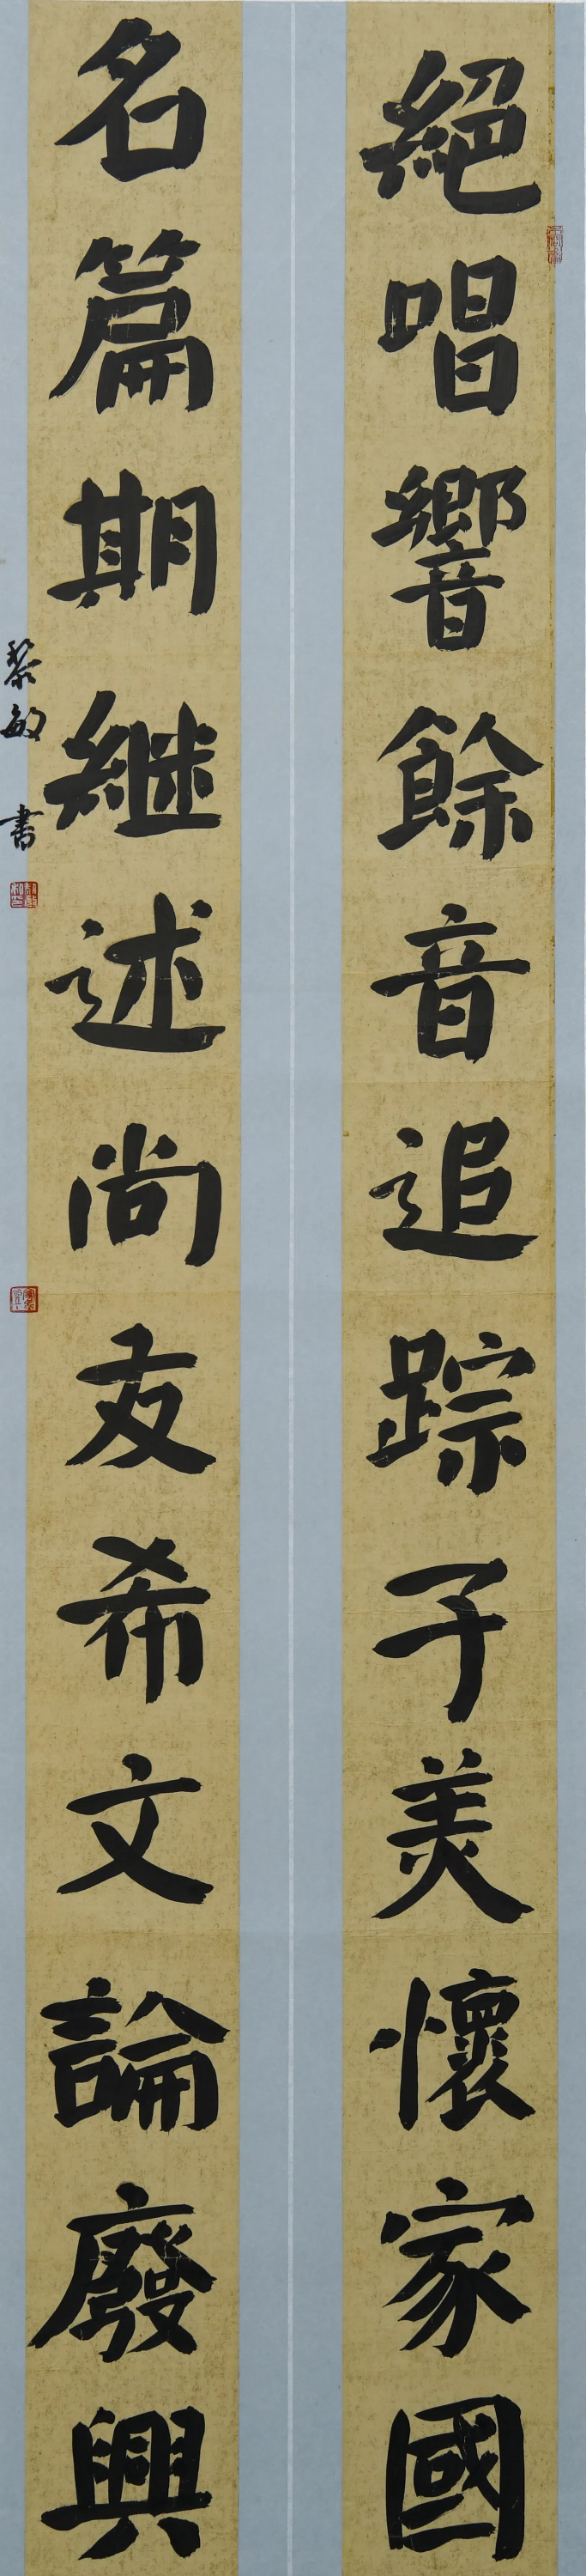 絕唱響餘音追踪子美懷家國
名篇期継述尚友希文論廢興
黎敏書